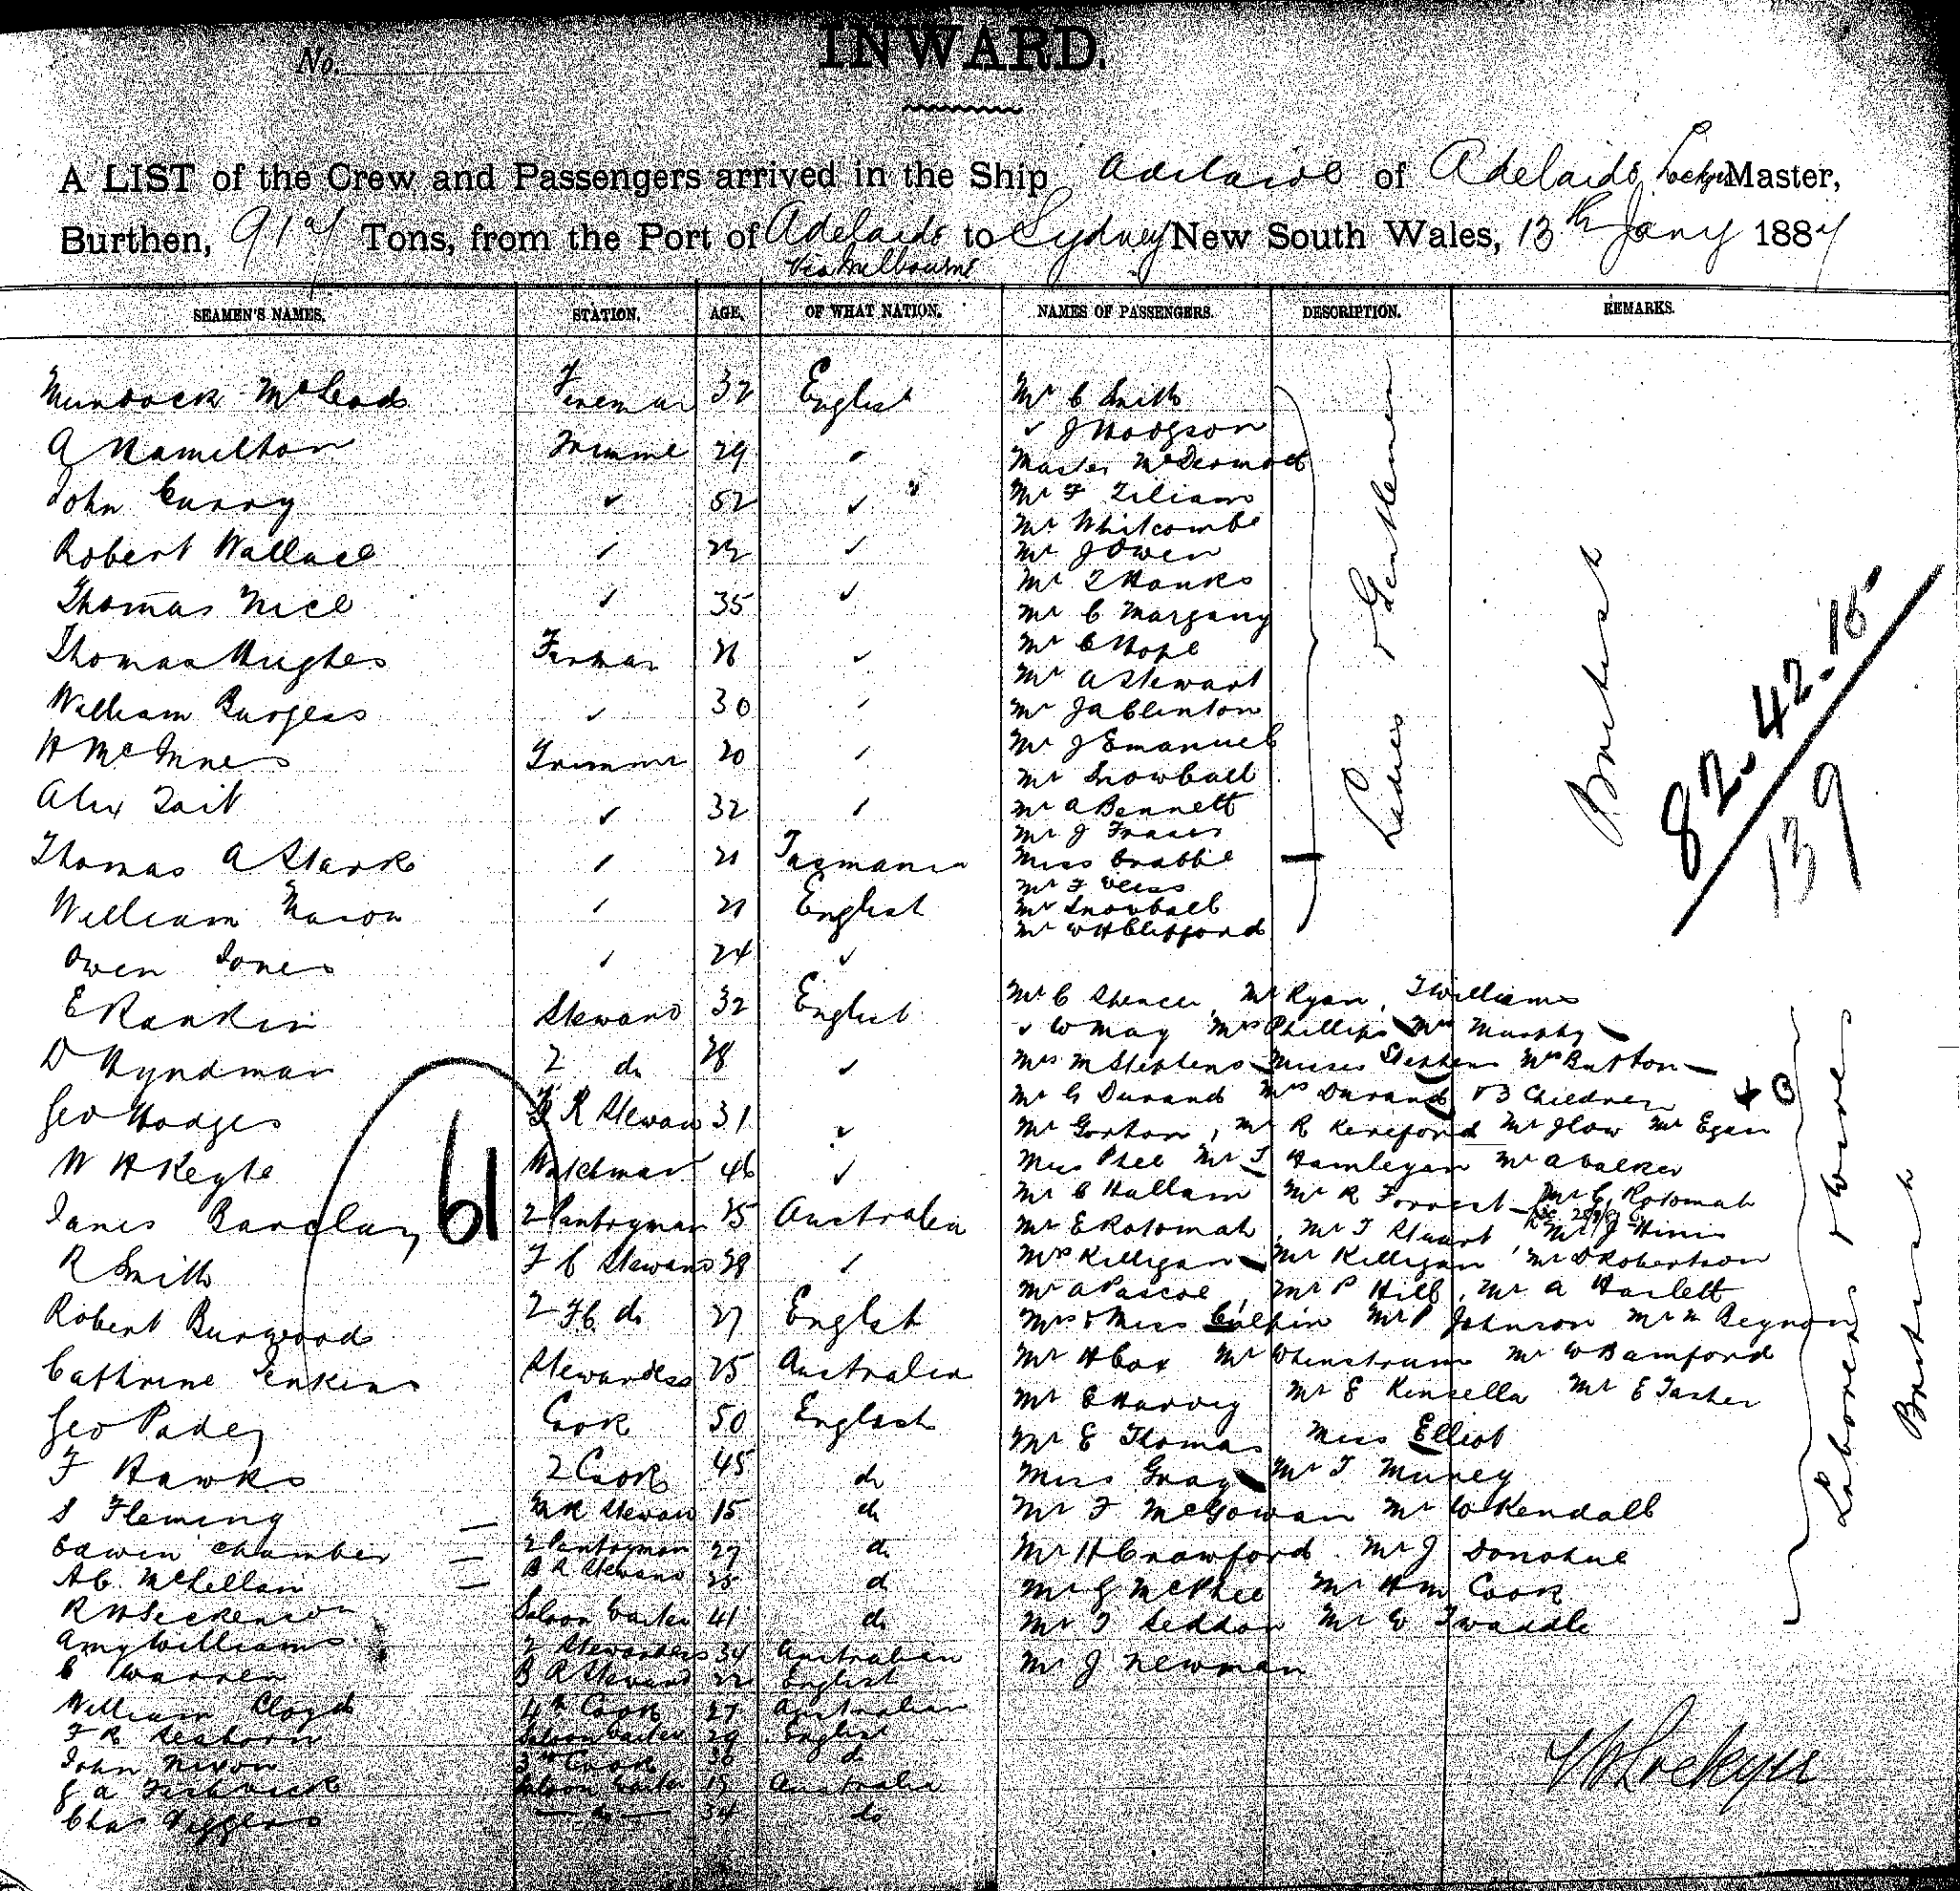 INWARD.
No.
A LIST of the Crew and Passengers arrived in the Ship Adelaide of Adelaide Lockyer Master,
Burthen, 917 Tons, from the Port of Adelaide to Sydney New South Wales, 13th Jany 1887
Via Melbourne
SEAMEN'S NAMES. STATION. AGE. OF WHAT NATION. NAMES OF PASSENGERS. DESCRIPTION. REMARKS.
Murdock McLeod Fireman 32 English
A Hamilton Trimme 29 "
John Curry ✓ 52 ✓
Robert Wallace ✓ 22 ✓
Thomas Nicl ✓ 35 ✓
Thomas Hughes Firman 26 ✓
William Burgess ✓ 30 ✓
H McInnes Trimmer 20 ✓
Alex Tait ✓ 32 ✓
Thomas A Stark ✓ 21 Tasmania
William Nason ✓ 21 English
Owen Jones ✓ 24 ✓
E Rankin Steward 32 English
D Hyndman 2 do 28 ✓
Geo Hodges R Stewar 31 ✓
W H Keyte Watchman 46 ✓
James Barclay 2 Pantryman 25 Australia
R Smith F C Steward 28 ✓
Robert Burwood 2 F.C. do 27 English
Cathrine Jenkins Stewardess 25 Australia
Geo Padey Cook 50 English
F Hawks 2 Cook 45 do
S Fleming M R Stewar 15 do
Edwin Chamber 2 Pantryman 27 do
A C McLellan B R Steward 25 do
R H Seckenson Saloon Waiter 41 do
Amy Williams 2 Stewardess 34 Australian
C Warren B R Steward 22 English
William Cloyd 4th Cook 27 Australian
F R Seaborn Saloon Waiter 29 English
John Nixon 3rd Cook 36 do
G A Fishwick Saloon Waiter 19 Australia
Chas Digglers do 34 do
61
Mr C Smith
✓ J Hodgson
Master McDermott
Mr F Liliam
Mr Whitcombe
Mr J Owen
Mr T Hanks
Mr C Margany
Mr C Hope
Mr A Stewart
Mr J A Clinton
Mr J Emanuel
Mr Snowball
Mr A Bennett
Mr J Fraser
Miss Crabbe
Mr F Weiss
Mr Snowball
Mr W H Clifford
Ladies & Gentlemen
British
82. 42. 15
139
Mr C Spencer, Mr Ryan, T Williams
✓ W May Mrs Phillips Mrs Murphy
Mrs M Stephens Misses Stephens Mrs Button
Mr G Durand Mrs Durand & 3 Children
Mr Gorton, Mr R Kereford Mr J Low Mr Egan
Miss Phee Mr T Hamlegan Mr A Calker
Mr C Hallam Mr R Forrest Mr G Rotomah
Mr E Rotomah, Mr T Stuart Mr J Hinis
Mrs Killigan Mr Killigan Mr D Robertson
Mr A Pascoe, Mr P Hill, Mr A Harlett
Mrs & Miss Culpin Mr P Johnson Mr N Reynon
Mr H Cox Mr Whenstrum Mr W Bamford
Mr E Harvey Mr E Kinsella Mr E Tasker
Mr E Thomas Miss Elliot
Miss Gray Mr T Muncy
Mr F McGowan Mr W Kendall
Mr H Crawford Mr J Donohue
Mr G McPhee Mr H M Cook
Mr T Seddon Mr W Twaddle
Mr J Newman
Laborers & Wives
British
W Lockyer